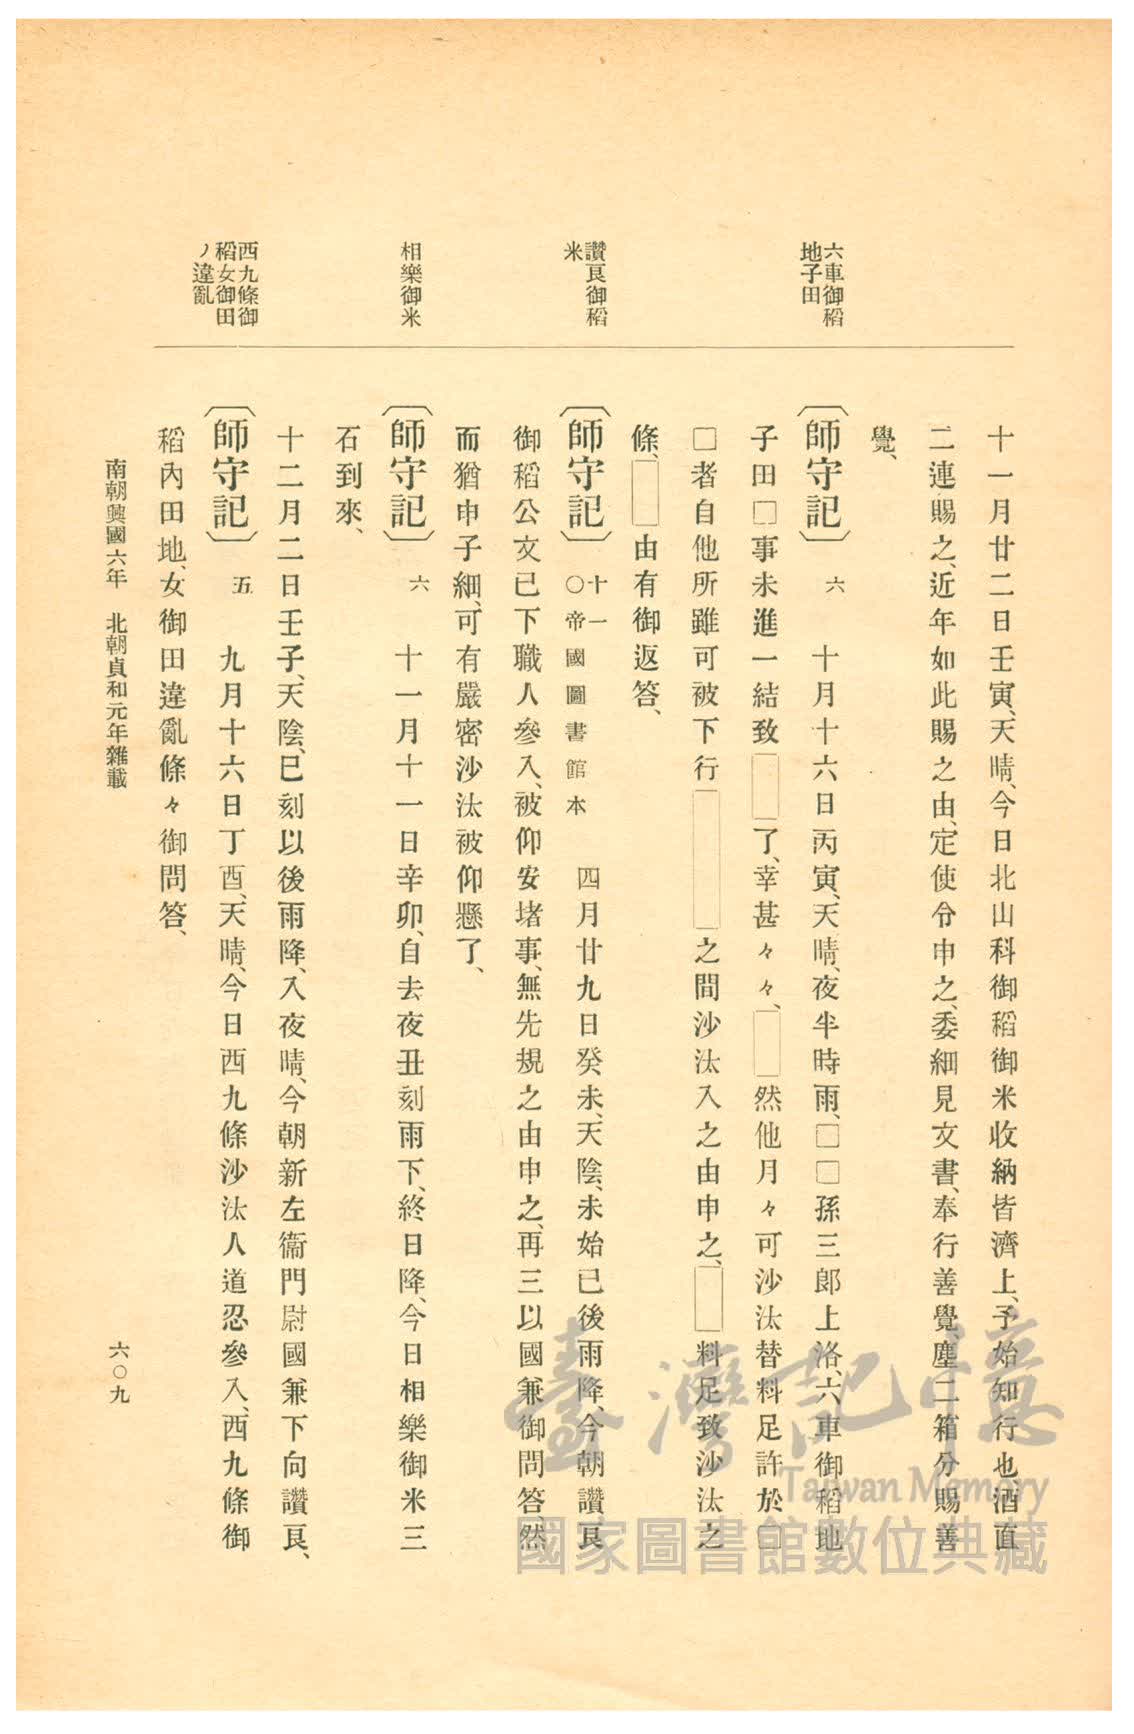 六車御稻
地子田
讚良御稻
米
相樂御米
西九條御
稻女御田
ノ違亂
十一月廿二日壬寅、天晴、今日北山科御稻御米收納皆濟上、予始知行也酒直
二連賜之、近年如此賜之由、定使令申之、委細見文書、奉行善覺、塵二箱分賜善
覺、
〔師守記〕 六 十月十六日丙寅、天晴、夜半時雨、□□孫三郎上洛、六車御稻地
子田□事未進一結致□了、幸甚々々、□然他月々可沙汰替料足許於□
□者自他所雖可被下行□之間沙汰入之由申之、□料足致沙汰之
條、□由有御返答、
〔師守記〕 十一 〇帝國圖書館本 四月廿九日癸未、天陰、未始已後雨降、今朝讚良
御稻公文已下職人參入、被仰安堵事、無先規之由申之、再三以國兼御問答、然
而猶申子細、可有嚴密沙汰被仰懸了、
〔師守記〕 六 十一月十一日辛卯、自去夜丑刻雨下、終日降、今日相樂御米三
石到來、
十二月二日壬子、天陰、巳刻以後雨降、入夜晴、今朝新左衞門尉國兼下向讚良、
〔師守記〕 五 九月十六日丁酉、天晴、今日西九條沙汰人道忍參入、西九條御
稻內田地、女御田違亂條々御問答、
南朝興國六年 北朝貞和元年雜載
六〇九
臺灣記憶
Taiwan Memory
國家圖書館數位典藏